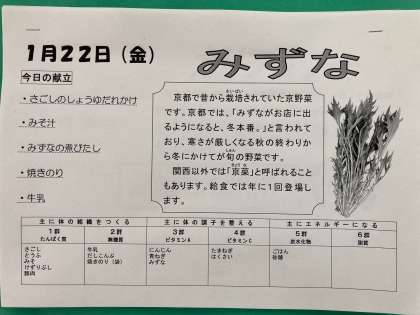 1月22日（金）
みずな
今日の献立
・さごしのしょうゆだれかけ
・みそ汁
・みずなの煮びたし
・焼きのり
・牛乳
京都で昔から栽培されていた京野菜
です。京都では、「みずながお店に出
るようになると、冬本番。」と言われて
おり、寒さが厳しくなる秋の終わりか
ら冬にかけてが旬の野菜です。
関西以外では「京菜」と呼ばれること
もあります。給食では年に1回登場し
ます。
主に体の組織をつくる
主に体の調子を整える
主にエネルギーになる
1群
たんぱく質
2群
無機質
3群
ビタミンA
4群
ビタミンC
5群
炭水化物
6群
脂質
さごし
とうふ
みそ
けずりぶし
豚肉
牛乳
だしこんぶ
焼きのり（袋）
にんじん
青ねぎ
みずな
たまねぎ
はくさい
ごはん
砂糖